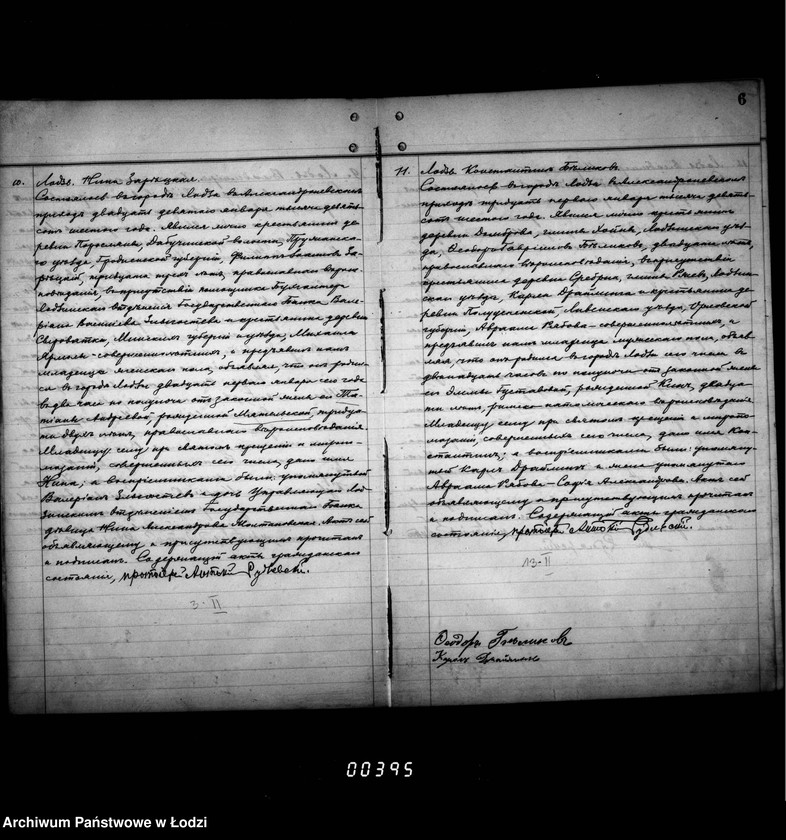 6
10. Лодзь. Нина Зарѣцкая.
Состоялось въ городѣ Лодзи въ Александроневскомъ
приходѣ двадцать девятаго января тысяча девять-
сотъ шестого года. Явился лично крестьянинъ де-
ревни волости, Пружанска-
го уѣзда, Гродненской губерніи, За-
рѣцкій, тридцати лѣтъ, православнаго вѣро-
исповѣданія, въ присутствіи помощника Бухгалтера
Лодзинскаго отдѣленія Государственнаго Банка Вале-
ріана и крестьянина деревни
Минской губерніи и уѣзда, Михаила
совершеннолѣтнихъ, и предъявилъ намъ
младенца женскаго пола, объявляя, что онъ родил-
ся въ городѣ Лодзи двадцать перваго января сего года
въ два часа по полуночи отъ законной жены его Та-
тіаны рожденной тридца-
ти двухъ лѣтъ, православнаго вѣроисповѣданія.
Младенцу сему при святомъ крещеніи и миропо-
мазаніи, совершенномъ сего числа, дано имя
Нина, а воспріемниками были: упомянутый
Валеріанъ и дочь Управляющаго Лод-
зинскимъ отдѣленіемъ Государственнаго Банка
дѣвица Нина Александровна Актъ сей
объявляющему и присутствующимъ прочитанъ
и подписанъ. Содержащій акты гражданскаго
состоянія, протоіерей Антоній Рудлевскій.
3-II
11. Лодзь. Константинъ Бѣликовъ
Состоялось въ городѣ Лодзи въ Александроневскомъ
приходѣ тридцать перваго января тысяча девять-
сотъ шестого года. Явился лично крестьянинъ
деревни Домброва, гмины Хойны, Лодзинскаго уѣз-
да, Ѳеодоръ Бѣликовъ, двадцати лѣтъ,
православнаго вѣроисповѣданія, въ присутствіи
крестьянина деревни гмины Лодзин-
скаго уѣзда, Карла и крестьянина де-
ревни Ливенскаго уѣзда, Орловской
губерніи, Авраама Рябова - совершеннолѣтнихъ, и
предъявилъ намъ младенца мужескаго пола, объяв-
ляя, что онъ родился въ городѣ Лодзи сего числа въ
двѣнадцать часовъ по полуночи отъ законной жены
его Густавовой, рожденной двадца-
ти лѣтъ, римско-католическаго вѣроисповѣданія.
Младенцу сему при святомъ крещеніи и миропо-
мазаніи, совершенномъ сего числа, дано имя Кон-
стантинъ, а воспріемниками были: упомяну-
тый Карлъ и жена упомянутаго
Авраама Рябова - Софія Александрова. Актъ сей
объявляющему и присутствующимъ прочитанъ
и подписанъ. Содержащій акты гражданскаго
состоянія, протоіерей Антоній Рудлевскій.
13-II
Ѳеодоръ Бѣликовъ
00395
Archiwum Państwowe w Łodzi